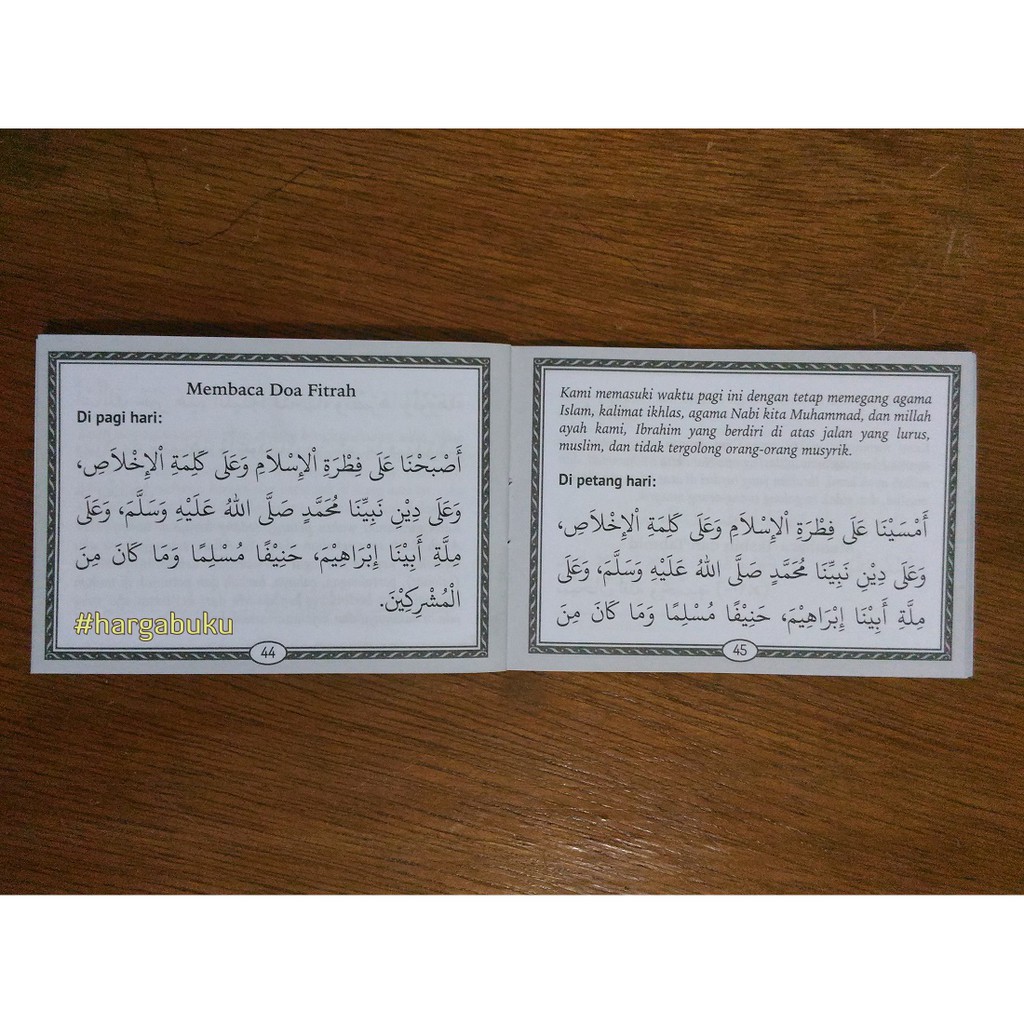 Membaca Doa Fitrah
Di pagi hari:
أَصْبَحْنَا عَلَى فِطْرَةِ الْإِسْلَامِ وَعَلَى كَلِمَةِ الْإِخْلَاصِ،
وَعَلَى دِيْنِ نَبِيِّنَا مُحَمَّدٍ صَلَّى اللهُ عَلَيْهِ وَسَلَّمَ، وَعَلَى
مِلَّةِ أَبِيْنَا إِبْرَاهِيْمَ، حَنِيْفًا مُسْلِمًا وَمَا كَانَ مِنَ
الْمُشْرِكِيْنَ.
#hargabuku
44
Kami memasuki waktu pagi ini dengan tetap memegang agama
Islam, kalimat ikhlas, agama Nabi kita Muhammad, dan millah
ayah kami, Ibrahim yang berdiri di atas jalan yang lurus,
muslim, dan tidak tergolong orang-orang musyrik.
Di petang hari:
أَمْسَيْنَا عَلَى فِطْرَةِ الْإِسْلَامِ وَعَلَى كَلِمَةِ الْإِخْلَاصِ،
وَعَلَى دِيْنِ نَبِيِّنَا مُحَمَّدٍ صَلَّى اللهُ عَلَيْهِ وَسَلَّمَ، وَعَلَى
مِلَّةِ أَبِيْنَا إِبْرَاهِيْمَ، حَنِيْفًا مُسْلِمًا وَمَا كَانَ مِنَ
45